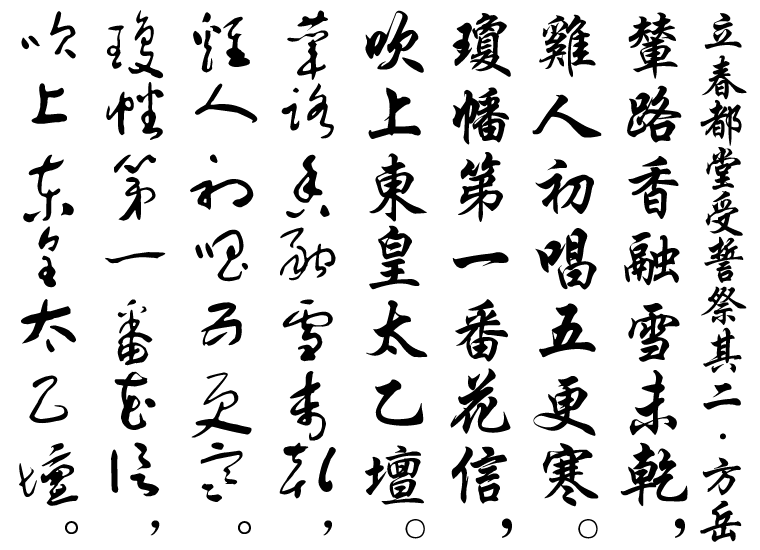 立春都堂受誓祭其二·方岳
輦路香融雪未乾，
雞人初唱五更寒。
瓊幡第一番花信，
吹上東皇太乙壇。
輦路香融雪未乾，
雞人初唱五更寒。
瓊幡第一番花信，
吹上東皇太乙壇。